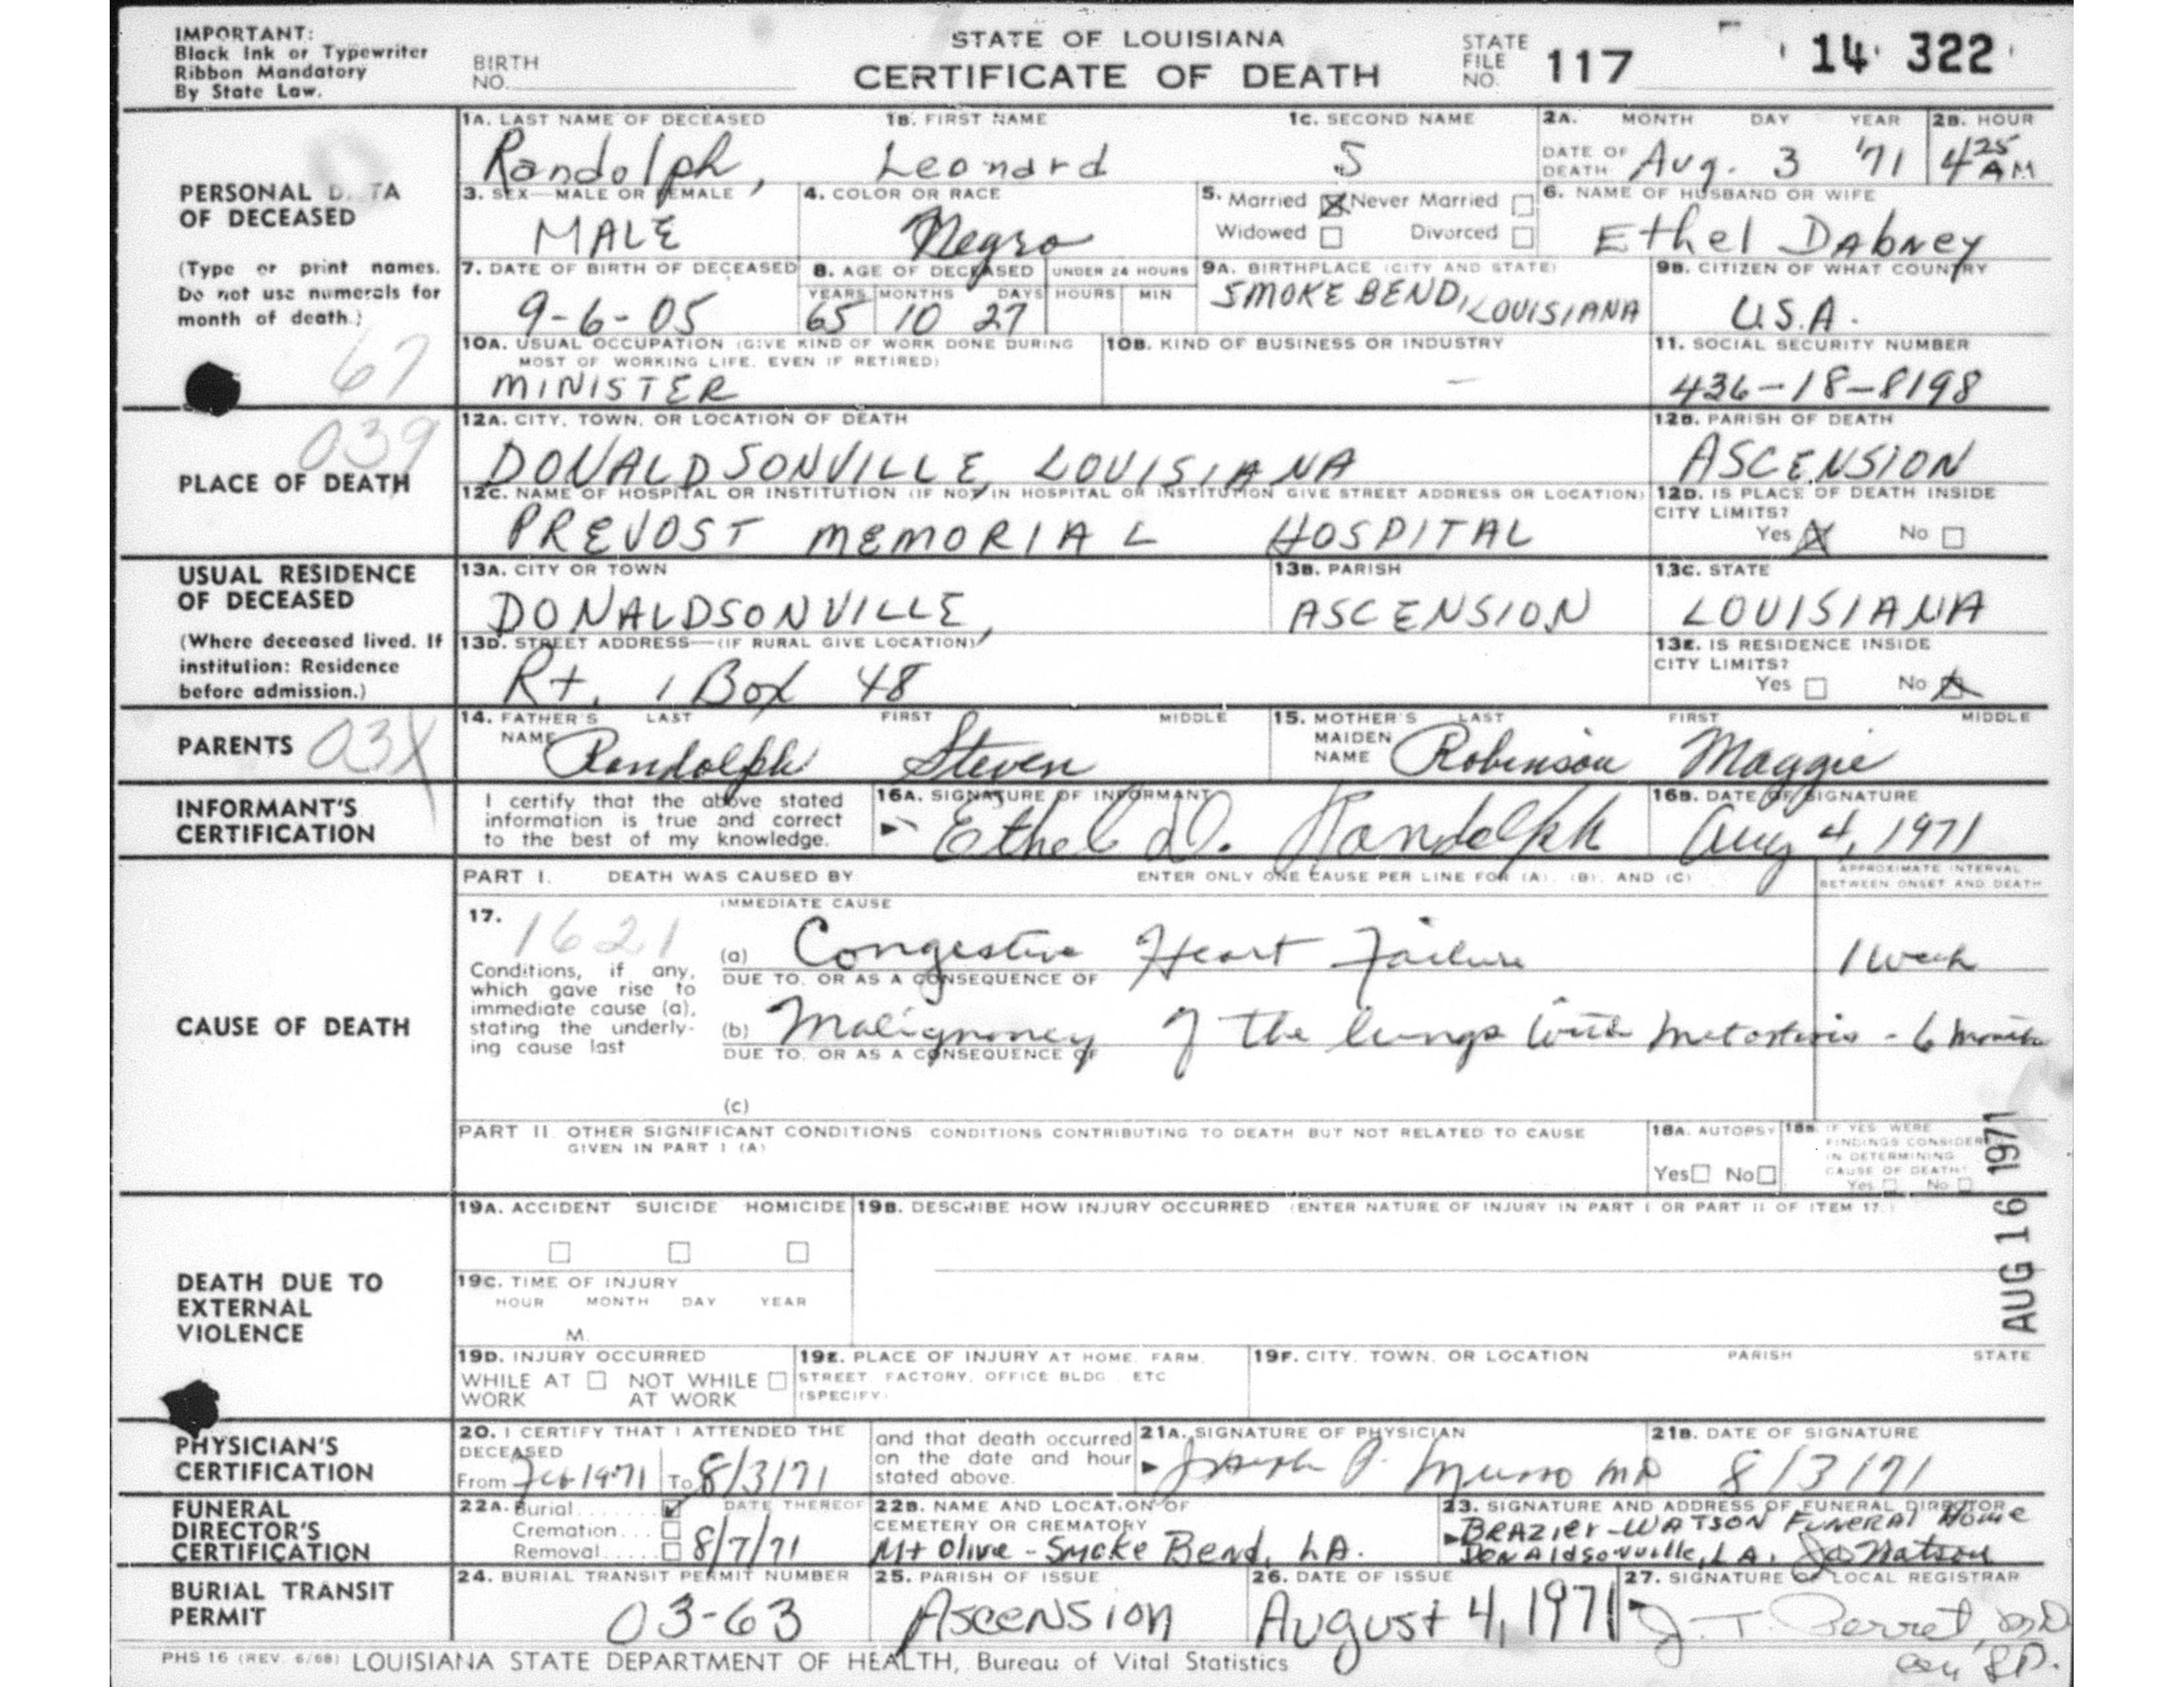 IMPORTANT:
Black Ink or Typewriter
Ribbon Mandatory
By State Law.
BIRTH
NO.
STATE OF LOUISIANA
CERTIFICATE OF DEATH
STATE
FILE
NO.
117
14 322
PERSONAL D TA
OF DECEASED
(Type or print names.
Do not use numerals for
month of death.)
67
1A. LAST NAME OF DECEASED 1B. FIRST NAME 1C. SECOND NAME
Randolph, Leonard S
2A. MONTH DAY YEAR
DATE OF
DEATH Aug. 3 '71
2B. HOUR
4 25 AM
3. SEX—MALE OR FEMALE
MALE
4. COLOR OR RACE
Negro
5. Married Never Married
Widowed Divorced
6. NAME OF HUSBAND OR WIFE
Ethel Dabney
7. DATE OF BIRTH OF DECEASED
9-6-05
8. AGE OF DECEASED UNDER 24 HOURS
YEARS MONTHS DAYS HOURS MIN
65 10 27
9A. BIRTHPLACE (CITY AND STATE)
SMOKE BEND, LOUISIANA
9B. CITIZEN OF WHAT COUNTRY
U.S.A.
10A. USUAL OCCUPATION (GIVE KIND OF WORK DONE DURING
MOST OF WORKING LIFE, EVEN IF RETIRED)
MINISTER
10B. KIND OF BUSINESS OR INDUSTRY
—
11. SOCIAL SECURITY NUMBER
436-18-8198
PLACE OF DEATH
039
12A. CITY, TOWN, OR LOCATION OF DEATH
DONALDSONVILLE, LOUISIANA
12B. PARISH OF DEATH
ASCENSION
12C. NAME OF HOSPITAL OR INSTITUTION (IF NOT IN HOSPITAL OR INSTITUTION GIVE STREET ADDRESS OR LOCATION)
PREVOST MEMORIAL HOSPITAL
12D. IS PLACE OF DEATH INSIDE
CITY LIMITS?
Yes No
USUAL RESIDENCE
OF DECEASED
(Where deceased lived. If
institution: Residence
before admission.)
13A. CITY OR TOWN
DONALDSONVILLE,
13B. PARISH
ASCENSION
13C. STATE
LOUISIANA
13D. STREET ADDRESS—(IF RURAL GIVE LOCATION)
Rt. 1 Box 48
13E. IS RESIDENCE INSIDE
CITY LIMITS?
Yes No
PARENTS
03X
14. FATHER'S LAST FIRST MIDDLE
NAME Randolph Steven
15. MOTHER'S LAST FIRST MIDDLE
MAIDEN
NAME Robinson Maggie
INFORMANT'S
CERTIFICATION
I certify that the above stated
information is true and correct
to the best of my knowledge.
16A. SIGNATURE OF INFORMANT
Ethel D. Randolph
16B. DATE OF SIGNATURE
Aug 4, 1971
CAUSE OF DEATH
PART I. DEATH WAS CAUSED BY ENTER ONLY ONE CAUSE PER LINE FOR (A), (B), AND (C)
APPROXIMATE INTERVAL
BETWEEN ONSET AND DEATH
17.
1621
Conditions, if any,
which gave rise to
immediate cause (a),
stating the underly-
ing cause last
IMMEDIATE CAUSE
(a) Congestive Heart Failure 1 week
DUE TO, OR AS A CONSEQUENCE OF
(b) Malignancy of the lungs with metastasis - 6 months
DUE TO, OR AS A CONSEQUENCE OF
(c)
PART II. OTHER SIGNIFICANT CONDITIONS: CONDITIONS CONTRIBUTING TO DEATH BUT NOT RELATED TO CAUSE
GIVEN IN PART I (A)
18A. AUTOPSY
Yes No
18B. IF YES WERE
FINDINGS CONSIDER
IN DETERMINING
CAUSE OF DEATH?
Yes No
AUG 16 1971
DEATH DUE TO
EXTERNAL
VIOLENCE
19A. ACCIDENT SUICIDE HOMICIDE
19B. DESCRIBE HOW INJURY OCCURRED (ENTER NATURE OF INJURY IN PART I OR PART II OF ITEM 17.)
19C. TIME OF INJURY
HOUR MONTH DAY YEAR
M.
19D. INJURY OCCURRED
WHILE AT NOT WHILE
WORK AT WORK
19E. PLACE OF INJURY AT HOME, FARM,
STREET, FACTORY, OFFICE BLDG., ETC
(SPECIFY)
19F. CITY, TOWN, OR LOCATION PARISH STATE
PHYSICIAN'S
CERTIFICATION
20. I CERTIFY THAT I ATTENDED THE
DECEASED
From Feb 1971 To 8/3/71
and that death occurred
on the date and hour
stated above.
21A. SIGNATURE OF PHYSICIAN
Joseph A. Musso MD
21B. DATE OF SIGNATURE
8/3/71
FUNERAL
DIRECTOR'S
CERTIFICATION
22A. Burial DATE THEREOF
Cremation
Removal 8/7/71
22B. NAME AND LOCATION OF
CEMETERY OR CREMATORY
Mt Olive - Smoke Bend, LA.
23. SIGNATURE AND ADDRESS OF FUNERAL DIRECTOR
BRAZIER-WATSON FUNERAL HOME
DONALDSONVILLE, LA. Watson
BURIAL TRANSIT
PERMIT
24. BURIAL TRANSIT PERMIT NUMBER
03-63
25. PARISH OF ISSUE
Ascension
26. DATE OF ISSUE
August 4, 1971
27. SIGNATURE OF LOCAL REGISTRAR
J. T. Perret, MD
PHS 16 (REV. 6/68) LOUISIANA STATE DEPARTMENT OF HEALTH, Bureau of Vital Statistics